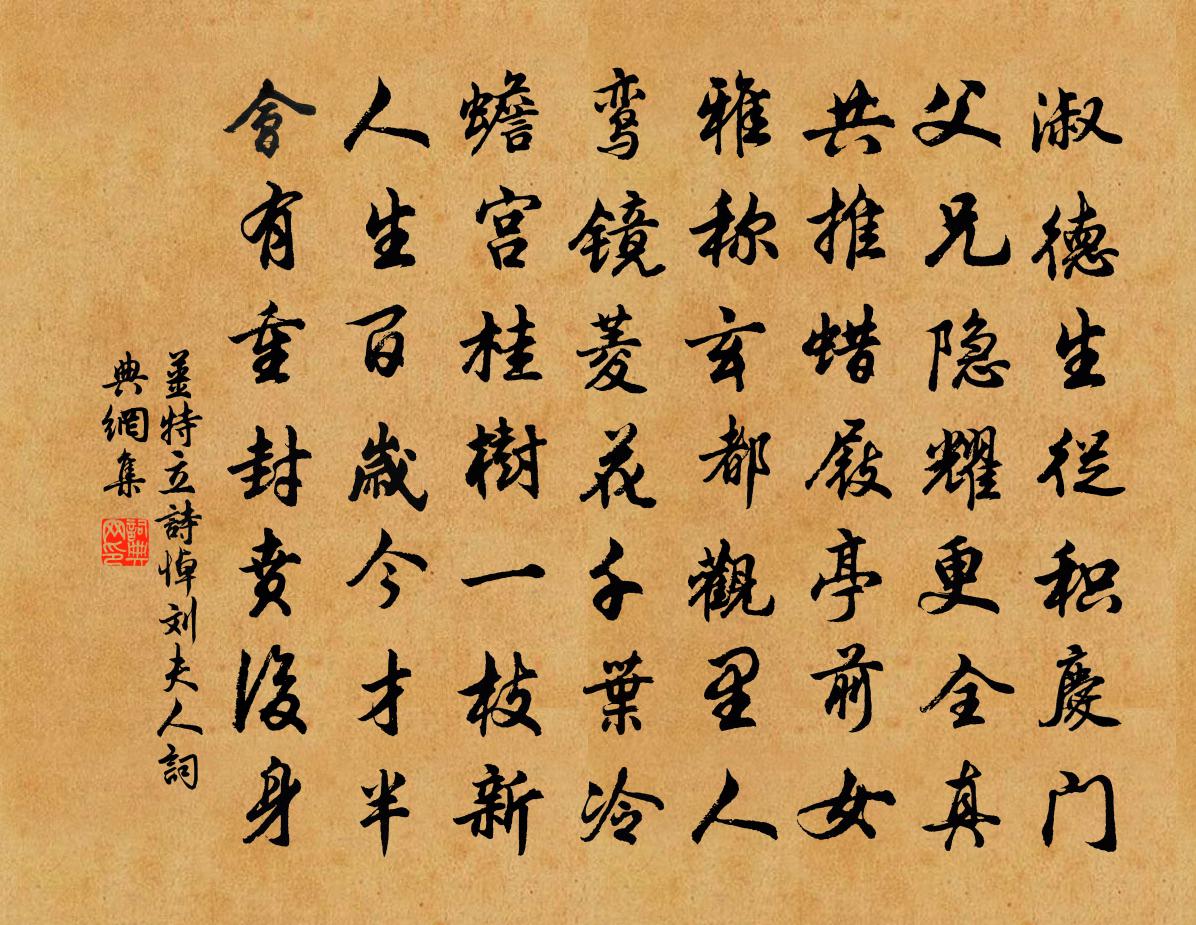 淑德生従积慶门
父兄隐耀更全真
共推蜡屐亭前女
雅称玄都觀里人
鸾镜菱花千葉冷
蟾宫桂樹一枝新
人生百歲今才半
會有重封賁後身
姜特立詩悼刘夫人詞
典網集
詞典网印